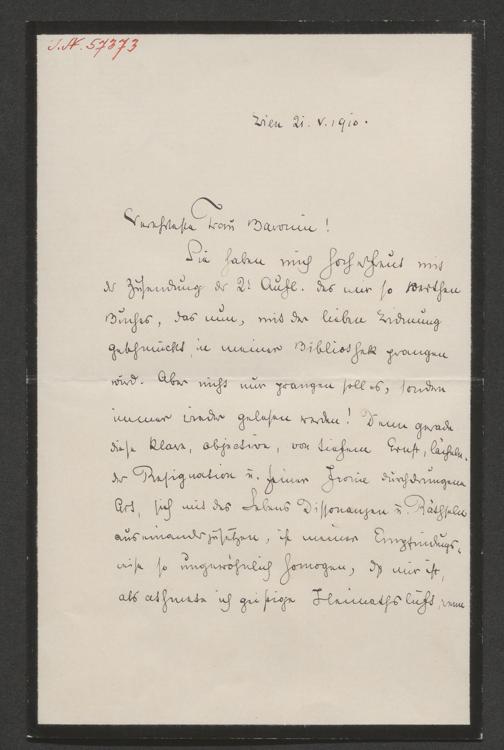 J.N. 57373
Wien 21. V. 1910.
Verehrteste Frau Baronin!
Sie haben mich hocherfreut mit
der Zusendung der 2. Aufl. des mir so werthen
Buches, das nun, mit der lieben Widmung
geschmückt, in meiner Bibliothek prangen
wird. Aber nicht nur prangen soll es, sondern
immer wieder gelesen werden! Denn gerade
diese klare, objective, von tiefem Ernst, lächeln-
der Resignation u. feiner Ironie durchdrungene
Art, sich mit des Lebens Dissonanzen u. Räthseln
auseinanderzusetzen, ist meiner Empfindungs-
weise so ungewöhnlich homogen, daß mir ist,
als athmete ich geistige Heimathsluft, wenn